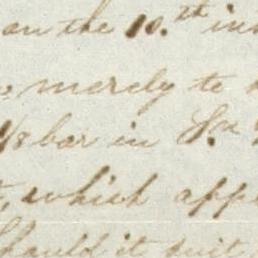 on the 10.th ins
merely to
1/8 bar in Sn
, which app
should it suit